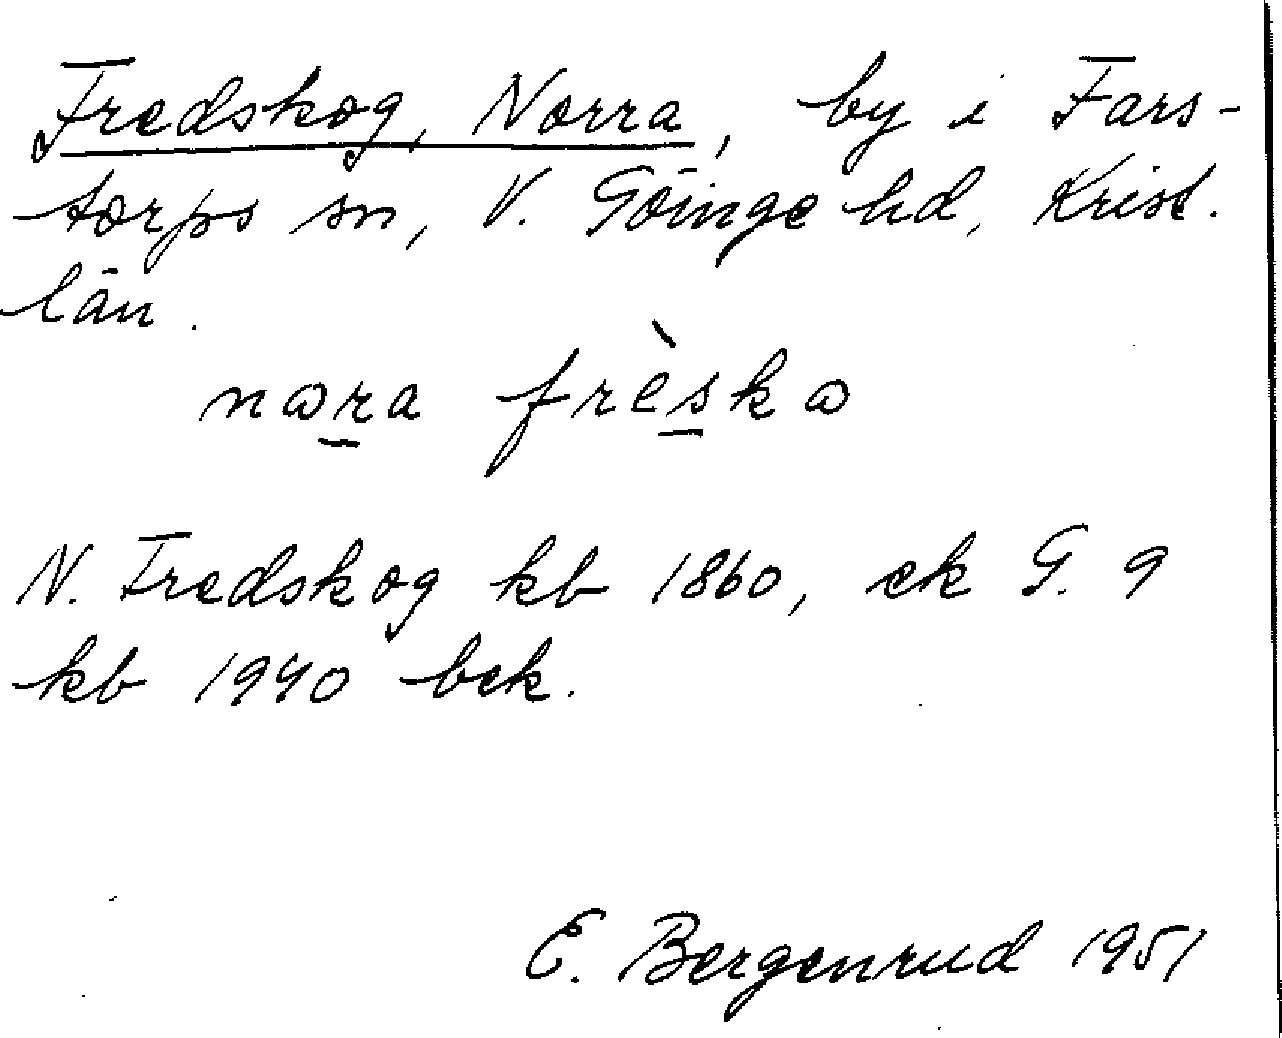 Fredskog, Norra, by i Fars-
torps sn, V. Göinge hd, Krist.
län.
nora frèsko
N. Fredskog kb 1860, ek G. 9
kb 1940 bek.
E. Bergenrud 1951